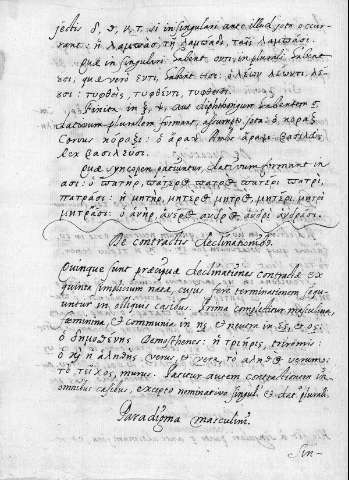 jectis δ, θ, ν, τ. si in singulari ante illud iota occur-
rant: ἡ λαμπάς, τῇ λαμπάδι, ταῖς λαμπάσι.
Quæ in singulari habent οντι, in plurali habent
ουσι, quæ vero εντι, habent εισι: ὁ λέων λέοντι, λέ-
ουσι: τυφθείς, τυφθέντι, τυφθεῖσι.
Finita in ξ, ψ, aut diphthongum habentem ς
dativum pluralem formant, assumpto iota: ὁ κόραξ
Corvus κόραξι: ὁ ἄραψ Arabs ἄραψι βασιλεὺς
Rex βασιλεῦσι.
Quæ syncopem patiuntur, dativum formant in
ασι: ὁ πατήρ, πατέρος πατρὸς πατέρι πατρί,
πατράσι: ἡ μήτηρ, μητέρος μητρὸς, μητέρι, μητρὶ
μητράσι: ὁ ἀνὴρ, ἀνέρος ἀνδρὸς ἀνδρὶ ἀνδράσι.
De contractis declinationibus
Quinque sunt præcipuæ declinationes contractæ ex
quinta simplicium natæ, cujus etiam terminationem sequ-
untur in obliquis casibus. Prima complectitur masculina,
fæminina, et communia in ης et neutra in ες, et ος:
ὁ δημοσθένης Demosthenes: ἡ τριήρης, triremis:
ὁ καὶ ἡ ἀληθής verus, et vera, τὸ ἀληθὲς verum:
τὸ τεῖχος, murus. Patitur autem contractionem in
omnibus casibus, excepto nominativo singul. et dat. plurali.
Paradigma masculini.
Sin-